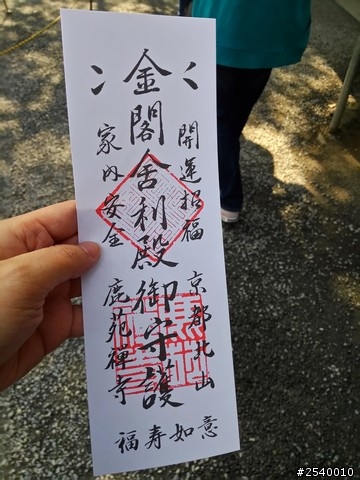 金閣舎利殿御守護
開運招福
家内安全
京都北山
鹿苑禅寺
福寿如意
#2540010